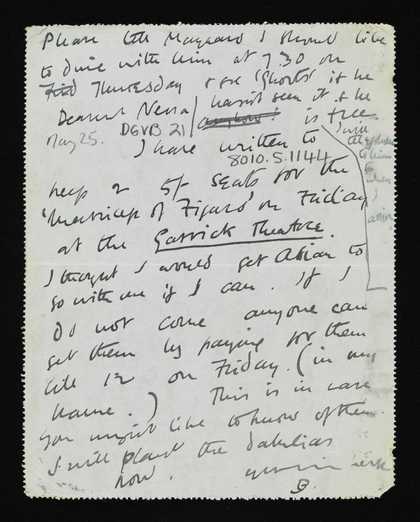 Please tell Maynard I should like
to dine with him at 7.30 on
Thursday & see 'Ghosts' if he
hasn't seen it & he
is free
Dearest Nessa
May 25. DGVB 21
I have written to
8010.5.1144
keep 2 5/- seats for the
'Marriage of Figaro' on Friday
at the Garrick Theatre.
I thought I would get Adrian to
go with me if I can. If I
do not come anyone can
get them by paying for them
till 12 on Friday. (in my
name.) This is in case
you might like to know of them.
I will plant the dahlias
now.
B.
I will
telephone
to him
when I